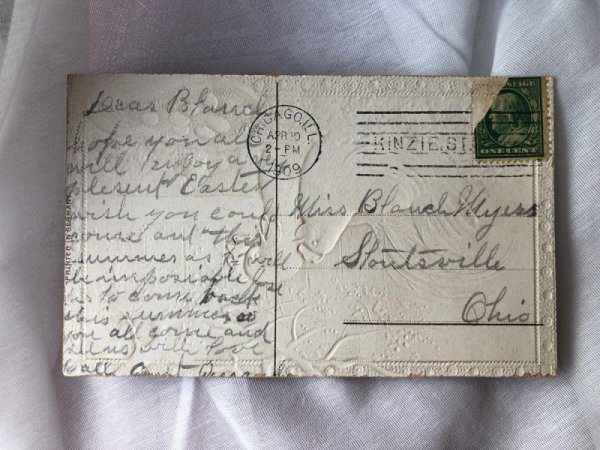 Dear Blanch
hope you all
will injoy a very
plesent Easter
wish you could
come out this
summer as it will
be imposiable for
us to come back
this summer so
you all come and
see us with love
to all Aunt
PRINTED IN GERMANY
CHICAGO, ILL.
APR 10
2 - PM
1909
KINZIE ST.
ONE CENT
Miss Blanch Myers
Stoutsville
Ohio